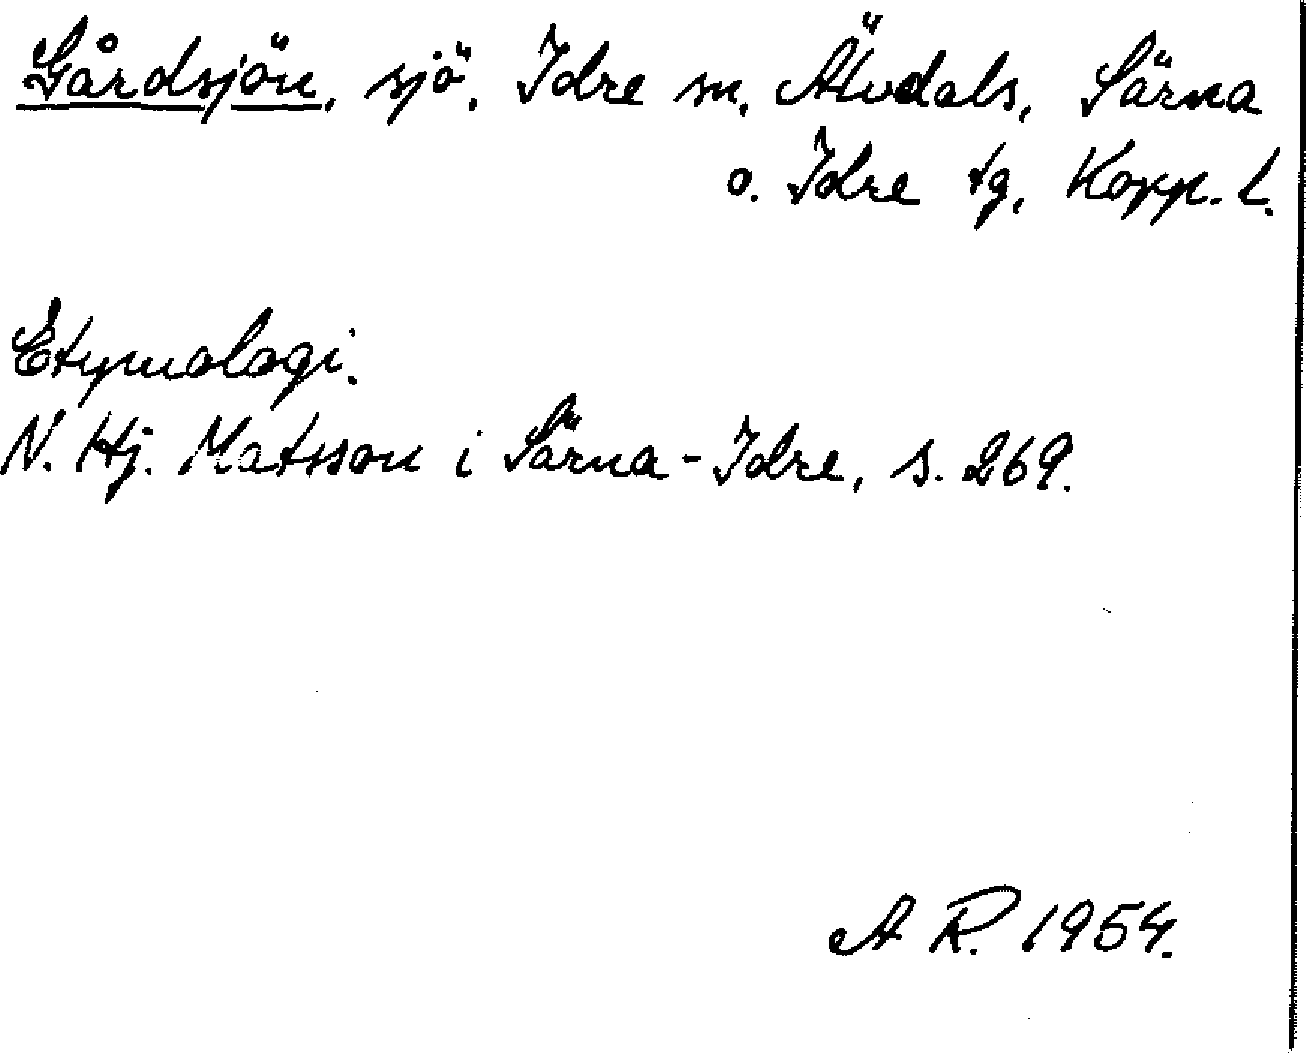 Gårdsjön, sjö, Idre sn, Älvdals, Särna
o. Idre tg, Kopp. l.
Etymologi.
N. Hj. Matsson i Särna-Idre, s. 269.
A R. 1954.